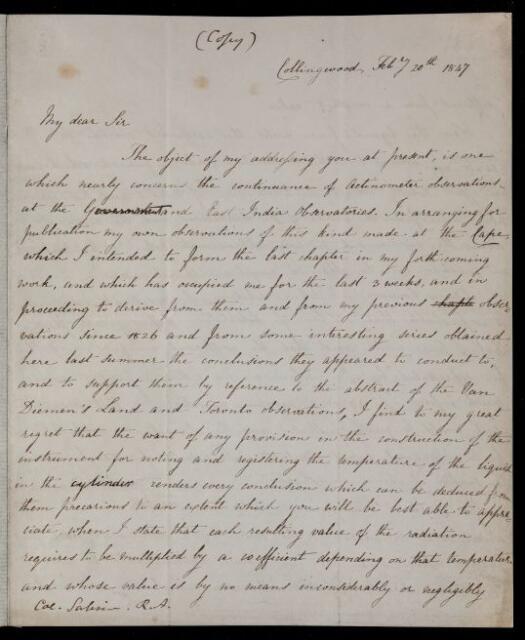 (Copy)
Collingwood, Feby 20th 1847
My dear Sir
The object of my addressing you at present, is one
which nearly concerns the continuance of Actinometer observations
at the Government and East India Observatories. In arranging for
publication my own observations of this kind made at the Cape,
which I intended to form the last chapter in my forthcoming
work, and which has occupied me for the last 3 weeks, and in
proceeding to derive from them and from my previous chapte obser-
vations since 1826 and from some interesting series obtained
here last summer the conclusions they appeared to conduct to,
and to support them by reference to the abstract of the Van
Diemen's Land and Toronto observations, I find to my great
regret that the want of any provision in the construction of the
instrument for noting and registering the temperature of the liquid
in the cylinder renders every conclusion which can be deduced from
them precarious to an extent which you will be best able to appre-
ciate, when I state that each resulting value of the radiation
requires to be multiplied by a coefficient depending on that temperature
and whose value is by no means inconsiderably or negligibly
Col. Sabine R.A.